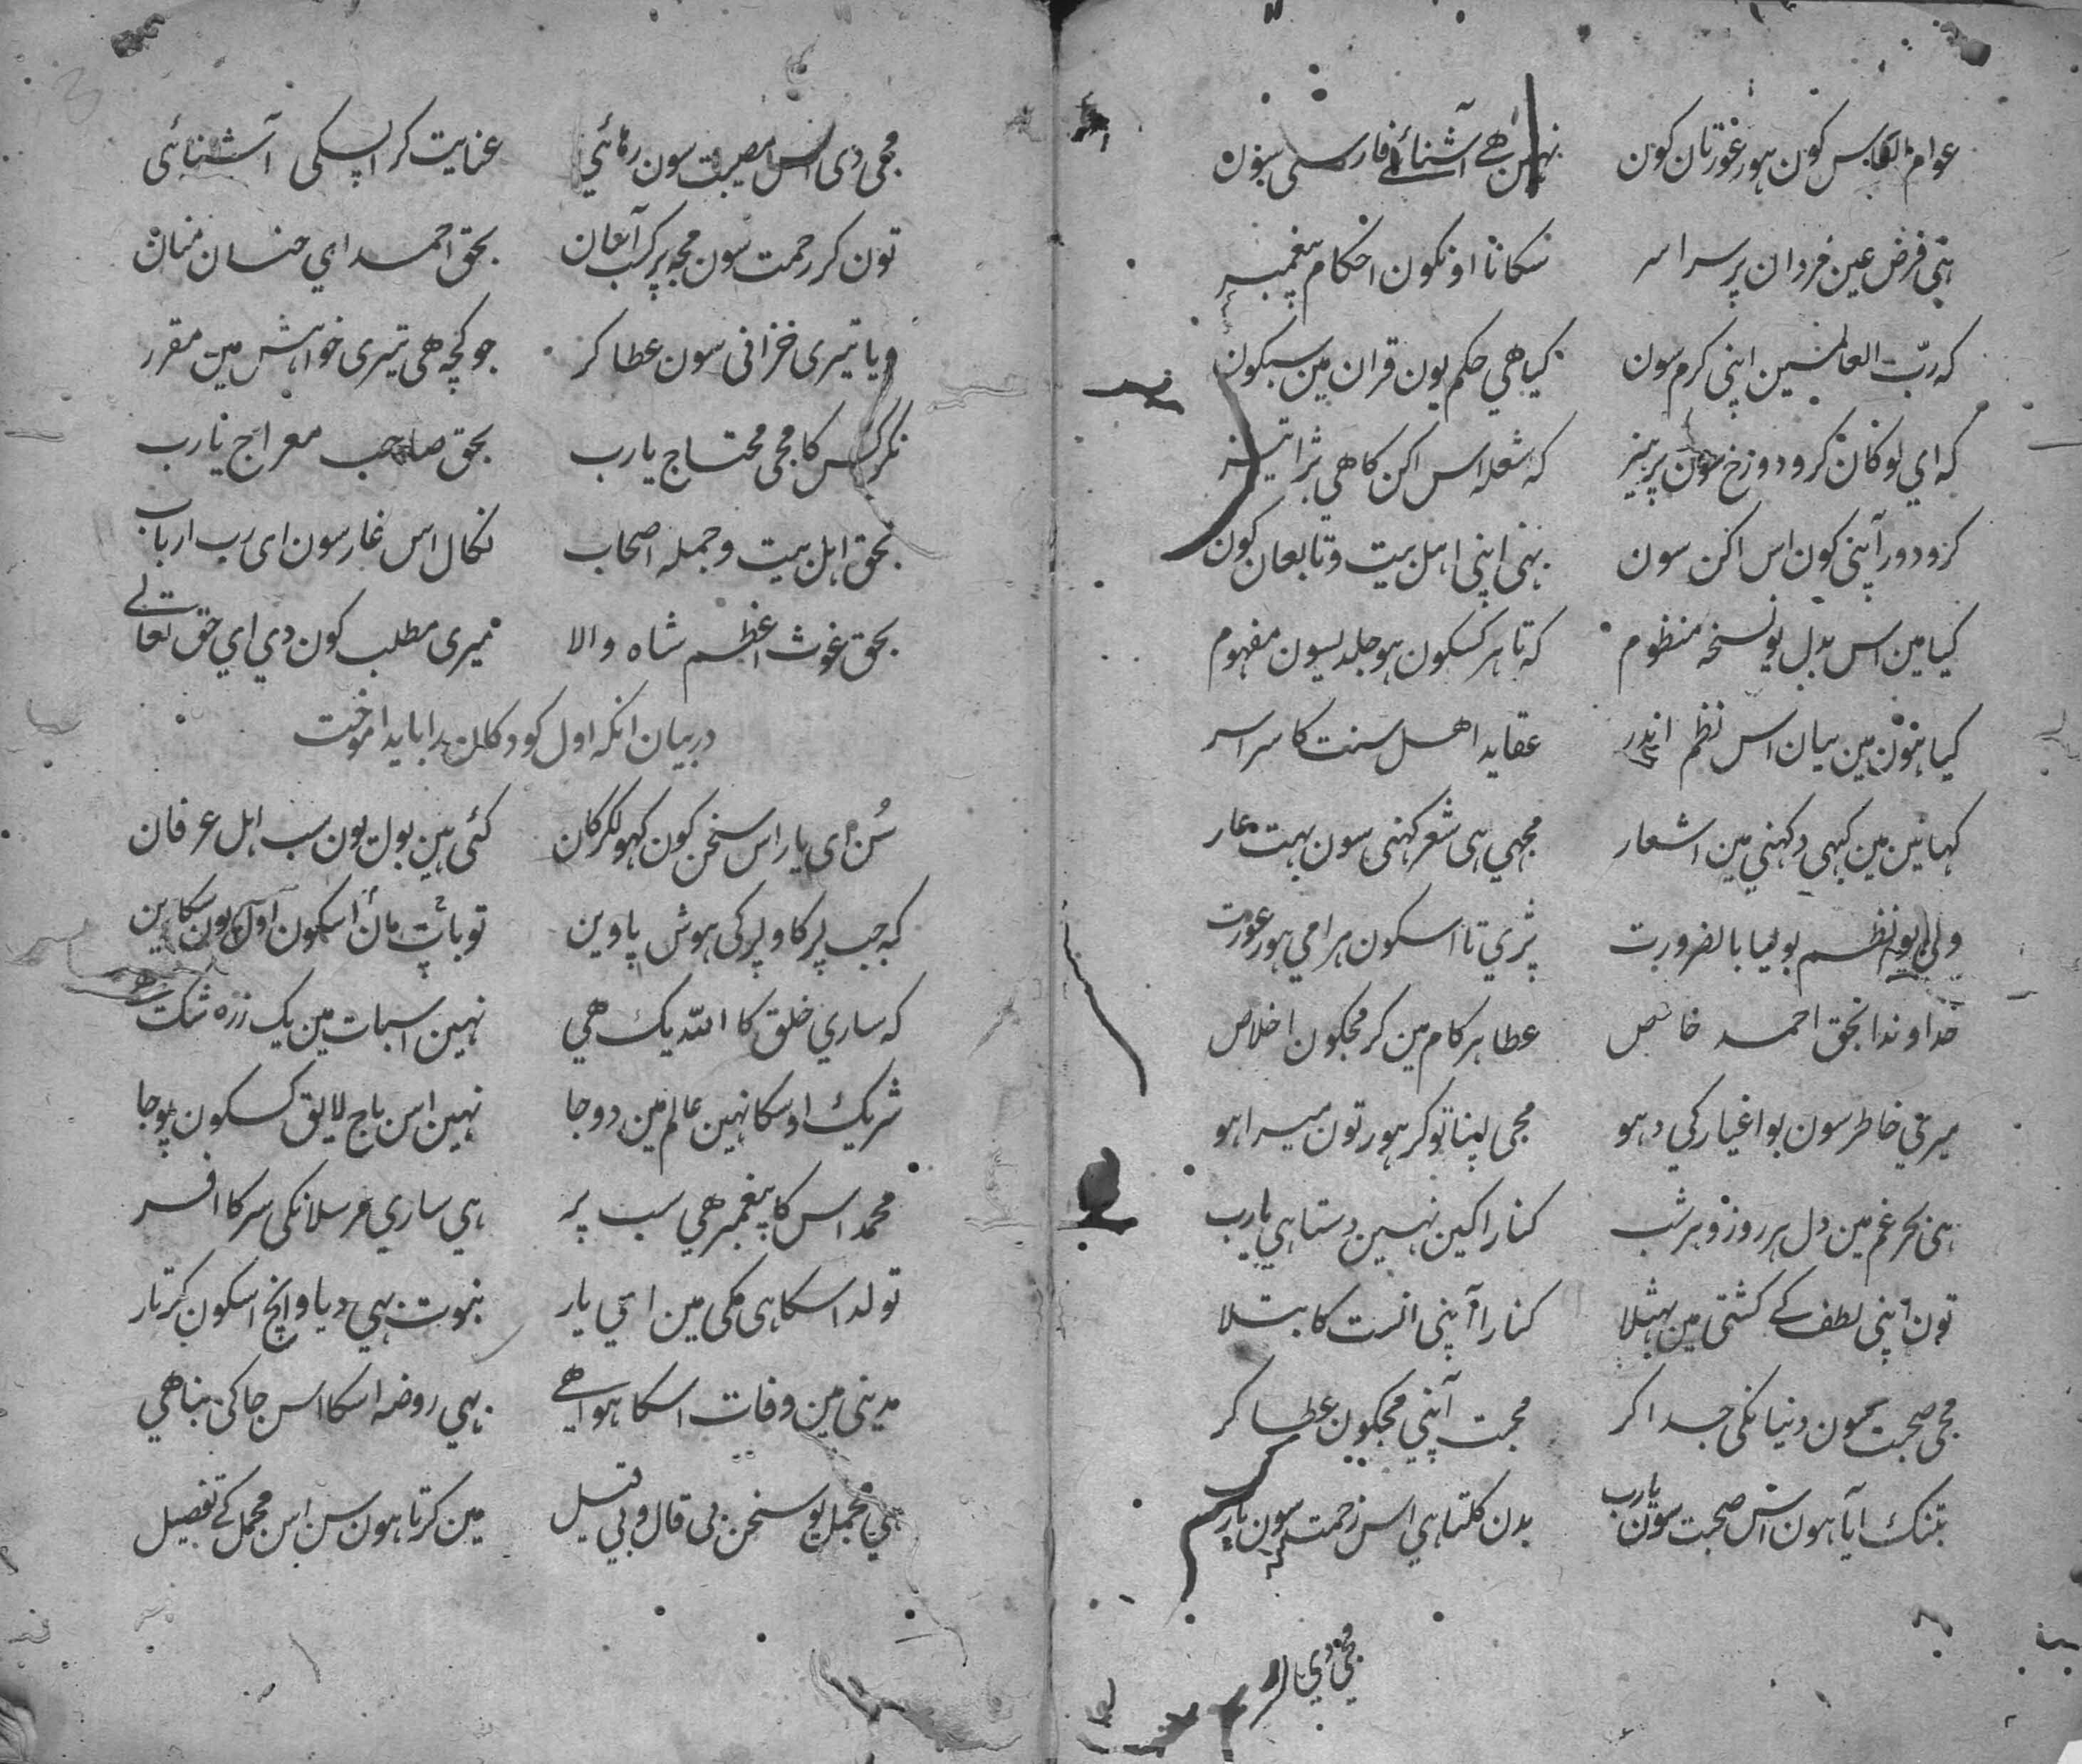 عوام الناس کون ہور عورتان کون نہین ھے آشنائے فارسی سون
ہئی فرض عین مردان پر سراسر سکانا اونکون احکام پیغمبر
کہ ربّ العالمین اپنی کرم سون کیا ھی حکم یون قران مین سبکون
کہ ای لوکان کرو دوزخ سون پرہیز کہ شعلہ اس اکن کا ھی بڑا تیز
کرو دور آپنی کون اس اکن سون بہی اپنی اہل بیت و تابعان کون
کیا مین اس بدل یو نسخہ منظوم کہ تا ہر کسکون ہو جلدیسون مفہوم
کیا ہون مین بیان اس نظم اندر عقاید اھل سنت کا سراسر
کہا نین مین کبہی دکہنی مین اشعار مجہی ہی شعر کہنی سون بہت عار
ولی یو نظم بولیا بالضرورت پڑی تا اسکون ہر امی ہور عورت
خداوندا بحق احمد خاص عطا ہر کام مین کر مجکون اخلاص
میری خاطر سون بو اغیار کی دہو مجی اپنا تو کر ہور تون میرا ہو
ہئی بحر غم مین دل ہر روز و ہر شب کنارا کین نہین دستا ہی یارب
تون اپنی لطف کے کشتی مین بہٹلا کنارا آپنی انست کا بتلا
مجی صحبت سون دنیا کی جدا کر محبت آپنی مجکون عطا کر
بتنک ایا ہون اس صحبت سون یارب بدن کلتا ہی اس زحمت سون یارب
مجی دی اس
مجی دی اس مصیبت سون رہائی عنایت کر اپسکی آشنائی
تون کر رحمت سون مجہ پر کرب آسان بحق احمد ای حنان منان
ویا تیری خزانی سون عطا کر جو کچہ ھی تیری خواہش مین مقرر
نکر کس کا مجی محتاج یارب بحق صاحب معراج یارب
بحق اہل بیت و جملہ اصحاب نکال اس غار سون ای رب ارباب
بحق غوث اعظم شاہ والا میری مطلب کون دی ای حق تعالے
در بیان انکہ اول کودکان را باید اموخت
سُن ای یار اس سخن کون کہولکر کان کئی ہین بولتون سب اہل عرفان
کہ جب لڑکا و لڑکی ہوش پاوین تو باپ مان اسکون اول یون سکاوین
کہ ساری خلق کا اللّہ یک ھی نہین اسبات مین یک ذرہ شک
شریک اوسکا نہین عالم مین دوجا نہین اس باج لایق کسکون پوجا
محمد اس کا پیغمبر ھی سب پر ہی ساری مرسلانکی سر کا افسر
تولد اسکا ہی مکی مین ای یار نبوت بہی دیا وانچ اسکون کرتار
مدینی مین وفات اسکا ہوا ھے بہی روضہ اسکا اس جاکی بنا ھی
ہی مجمل یو سخن بی قال و بی قیل مین کرتا ہون سن اس مجمل کے تفصیل